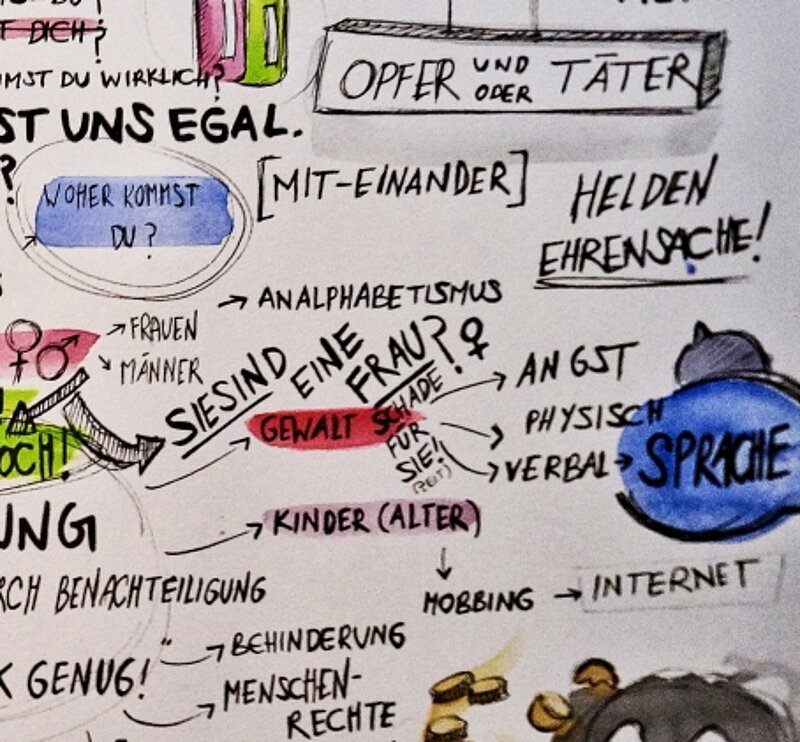 DICH?
MST DU WIRKLICH?
ST UNS EGAL.
?
OPFER UND ODER TÄTER
WOHER KOMMST
DU?
[MIT-EINANDER]
HELDEN
EHRENSACHE!
→ ANALPHABETISMUS
→ FRAUEN
MÄNNER
SIE SIND EINE FRAU? ♀
SCHADE
FÜR
SIE!
GEWALT
→ ANGST
→ PHYSISCH
→ VERBAL → SPRACHE
OCH!
UNG
→ KINDER (ALTER)
↓
MOBBING → INTERNET
RCH BENACHTEILIGUNG
→ BEHINDERUNG
K GENUG!
→ MENSCHEN-
RECHTE